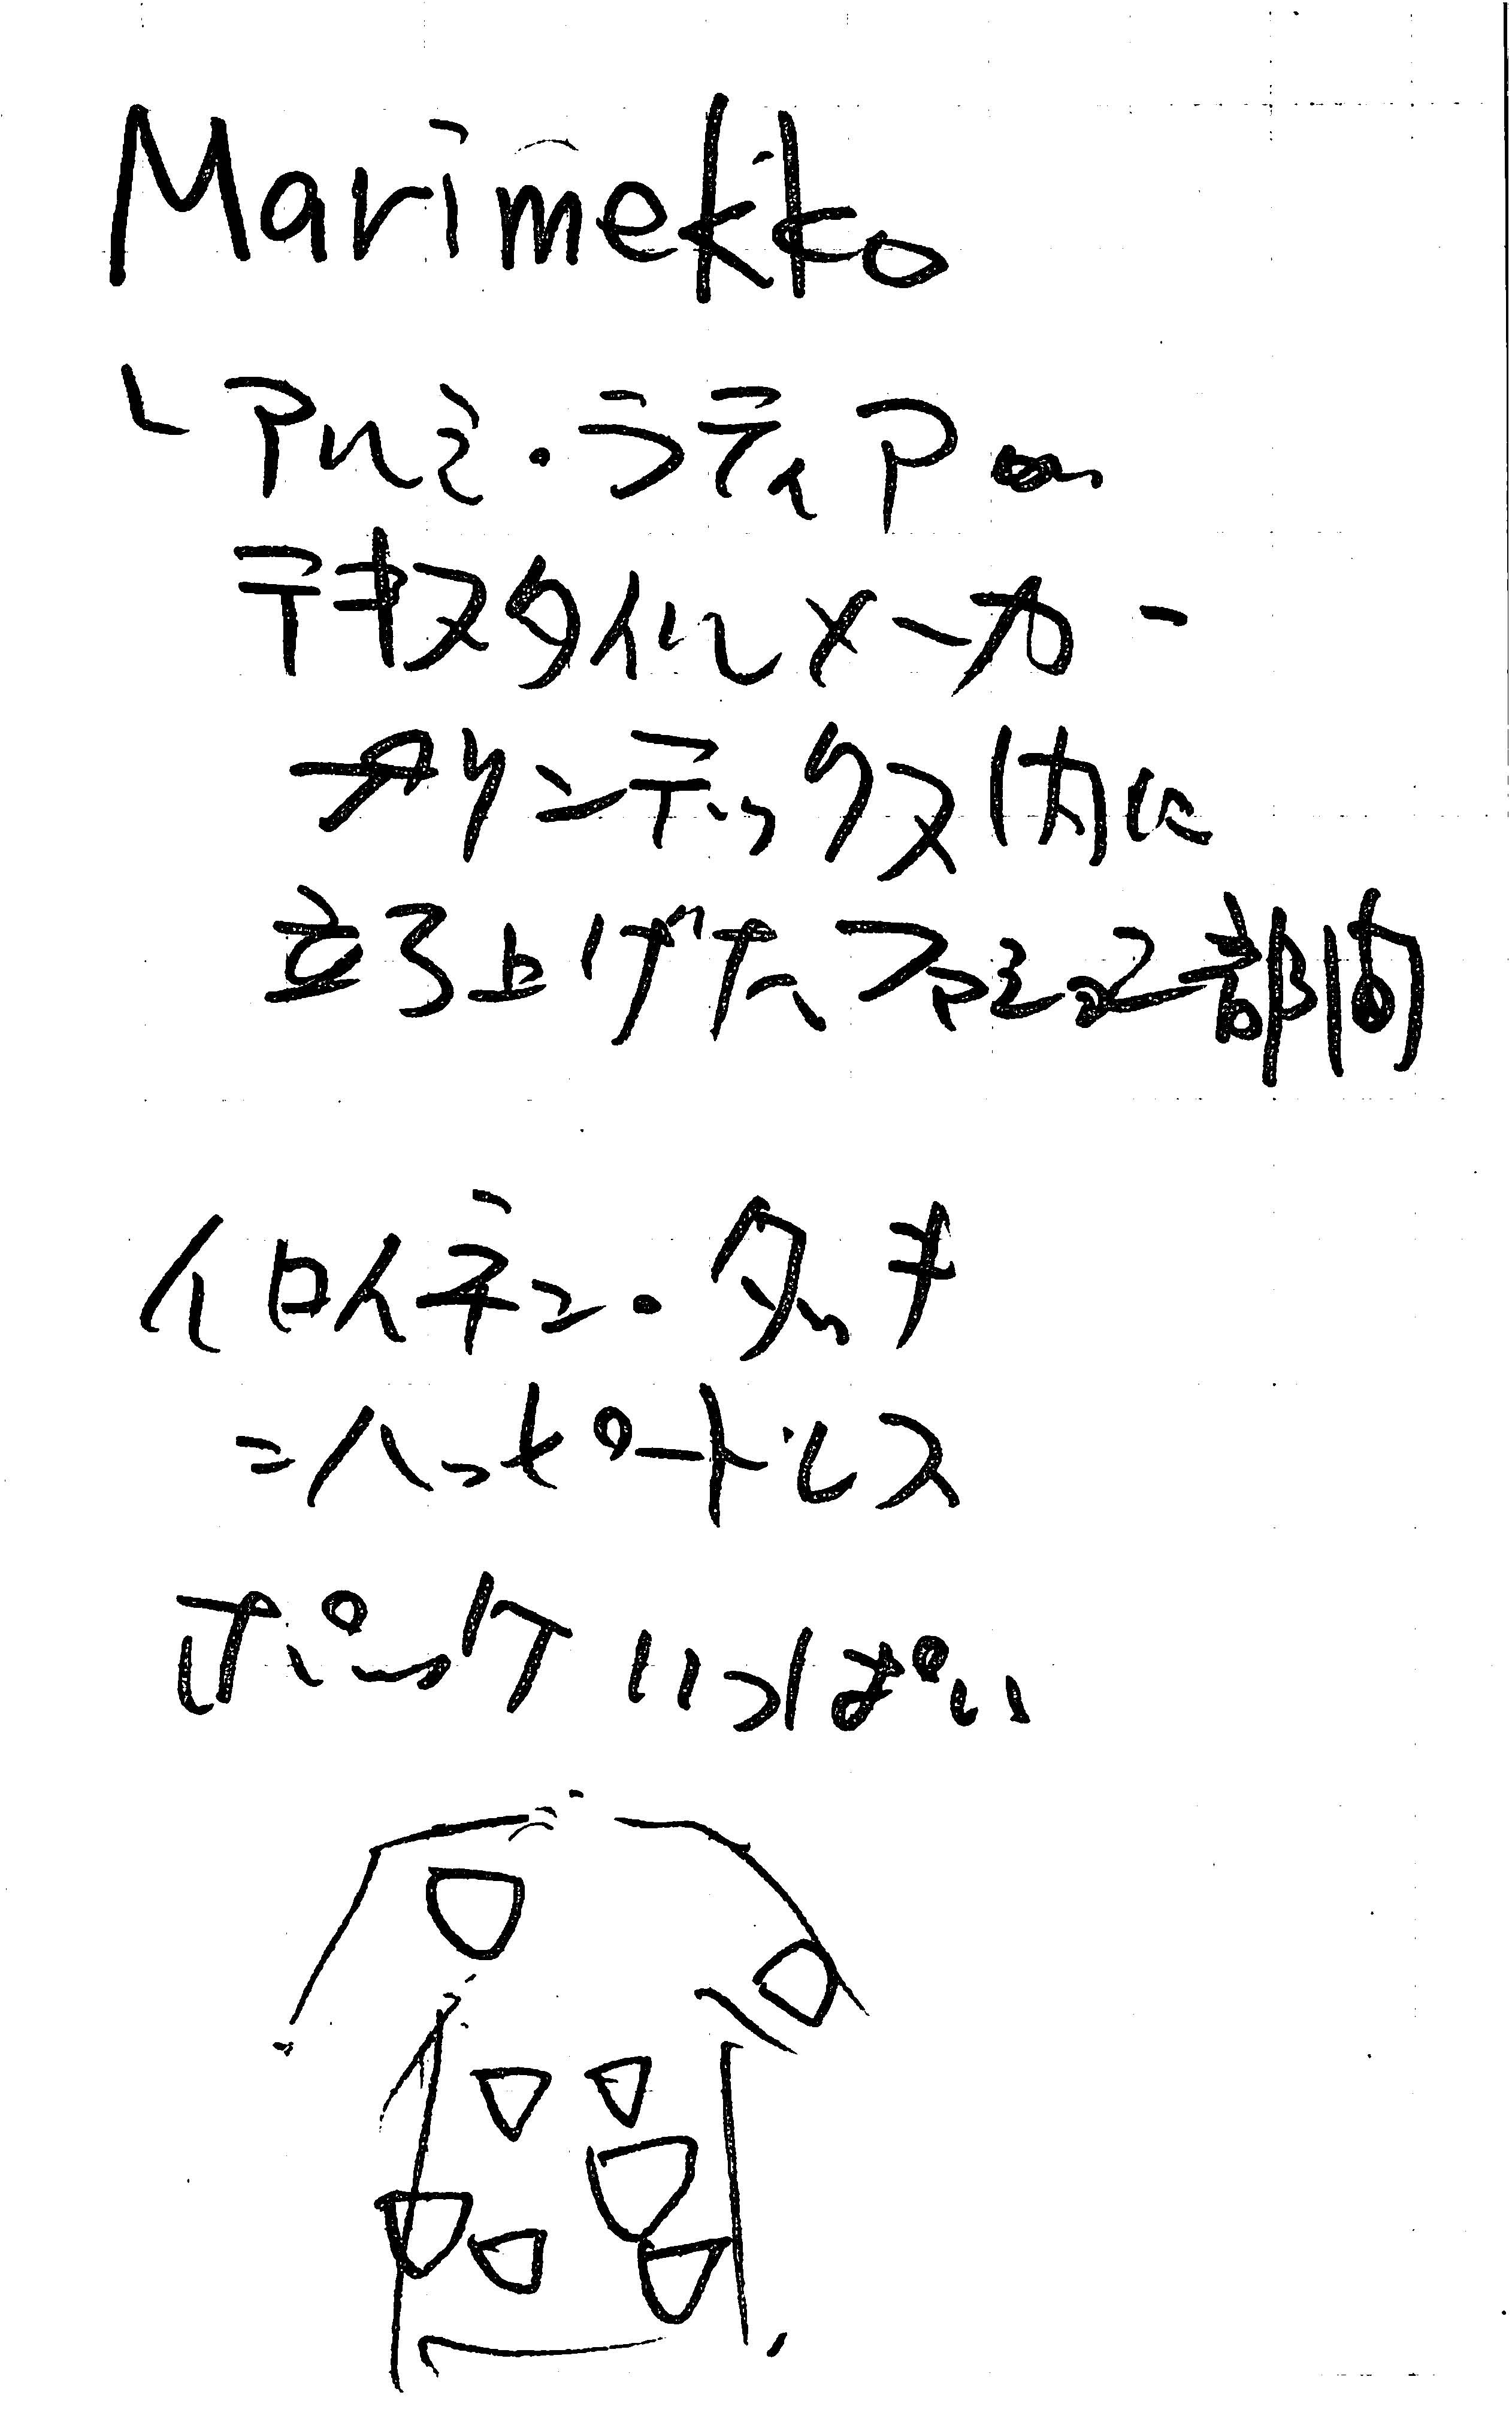 Marimekko
└ アルミ・ラティア
テキスタイルメーカー
プリンテックス内に
立ち上げたファション部門
イロイネン・タッキ
=ハッピードレス
ポッケいっぱい